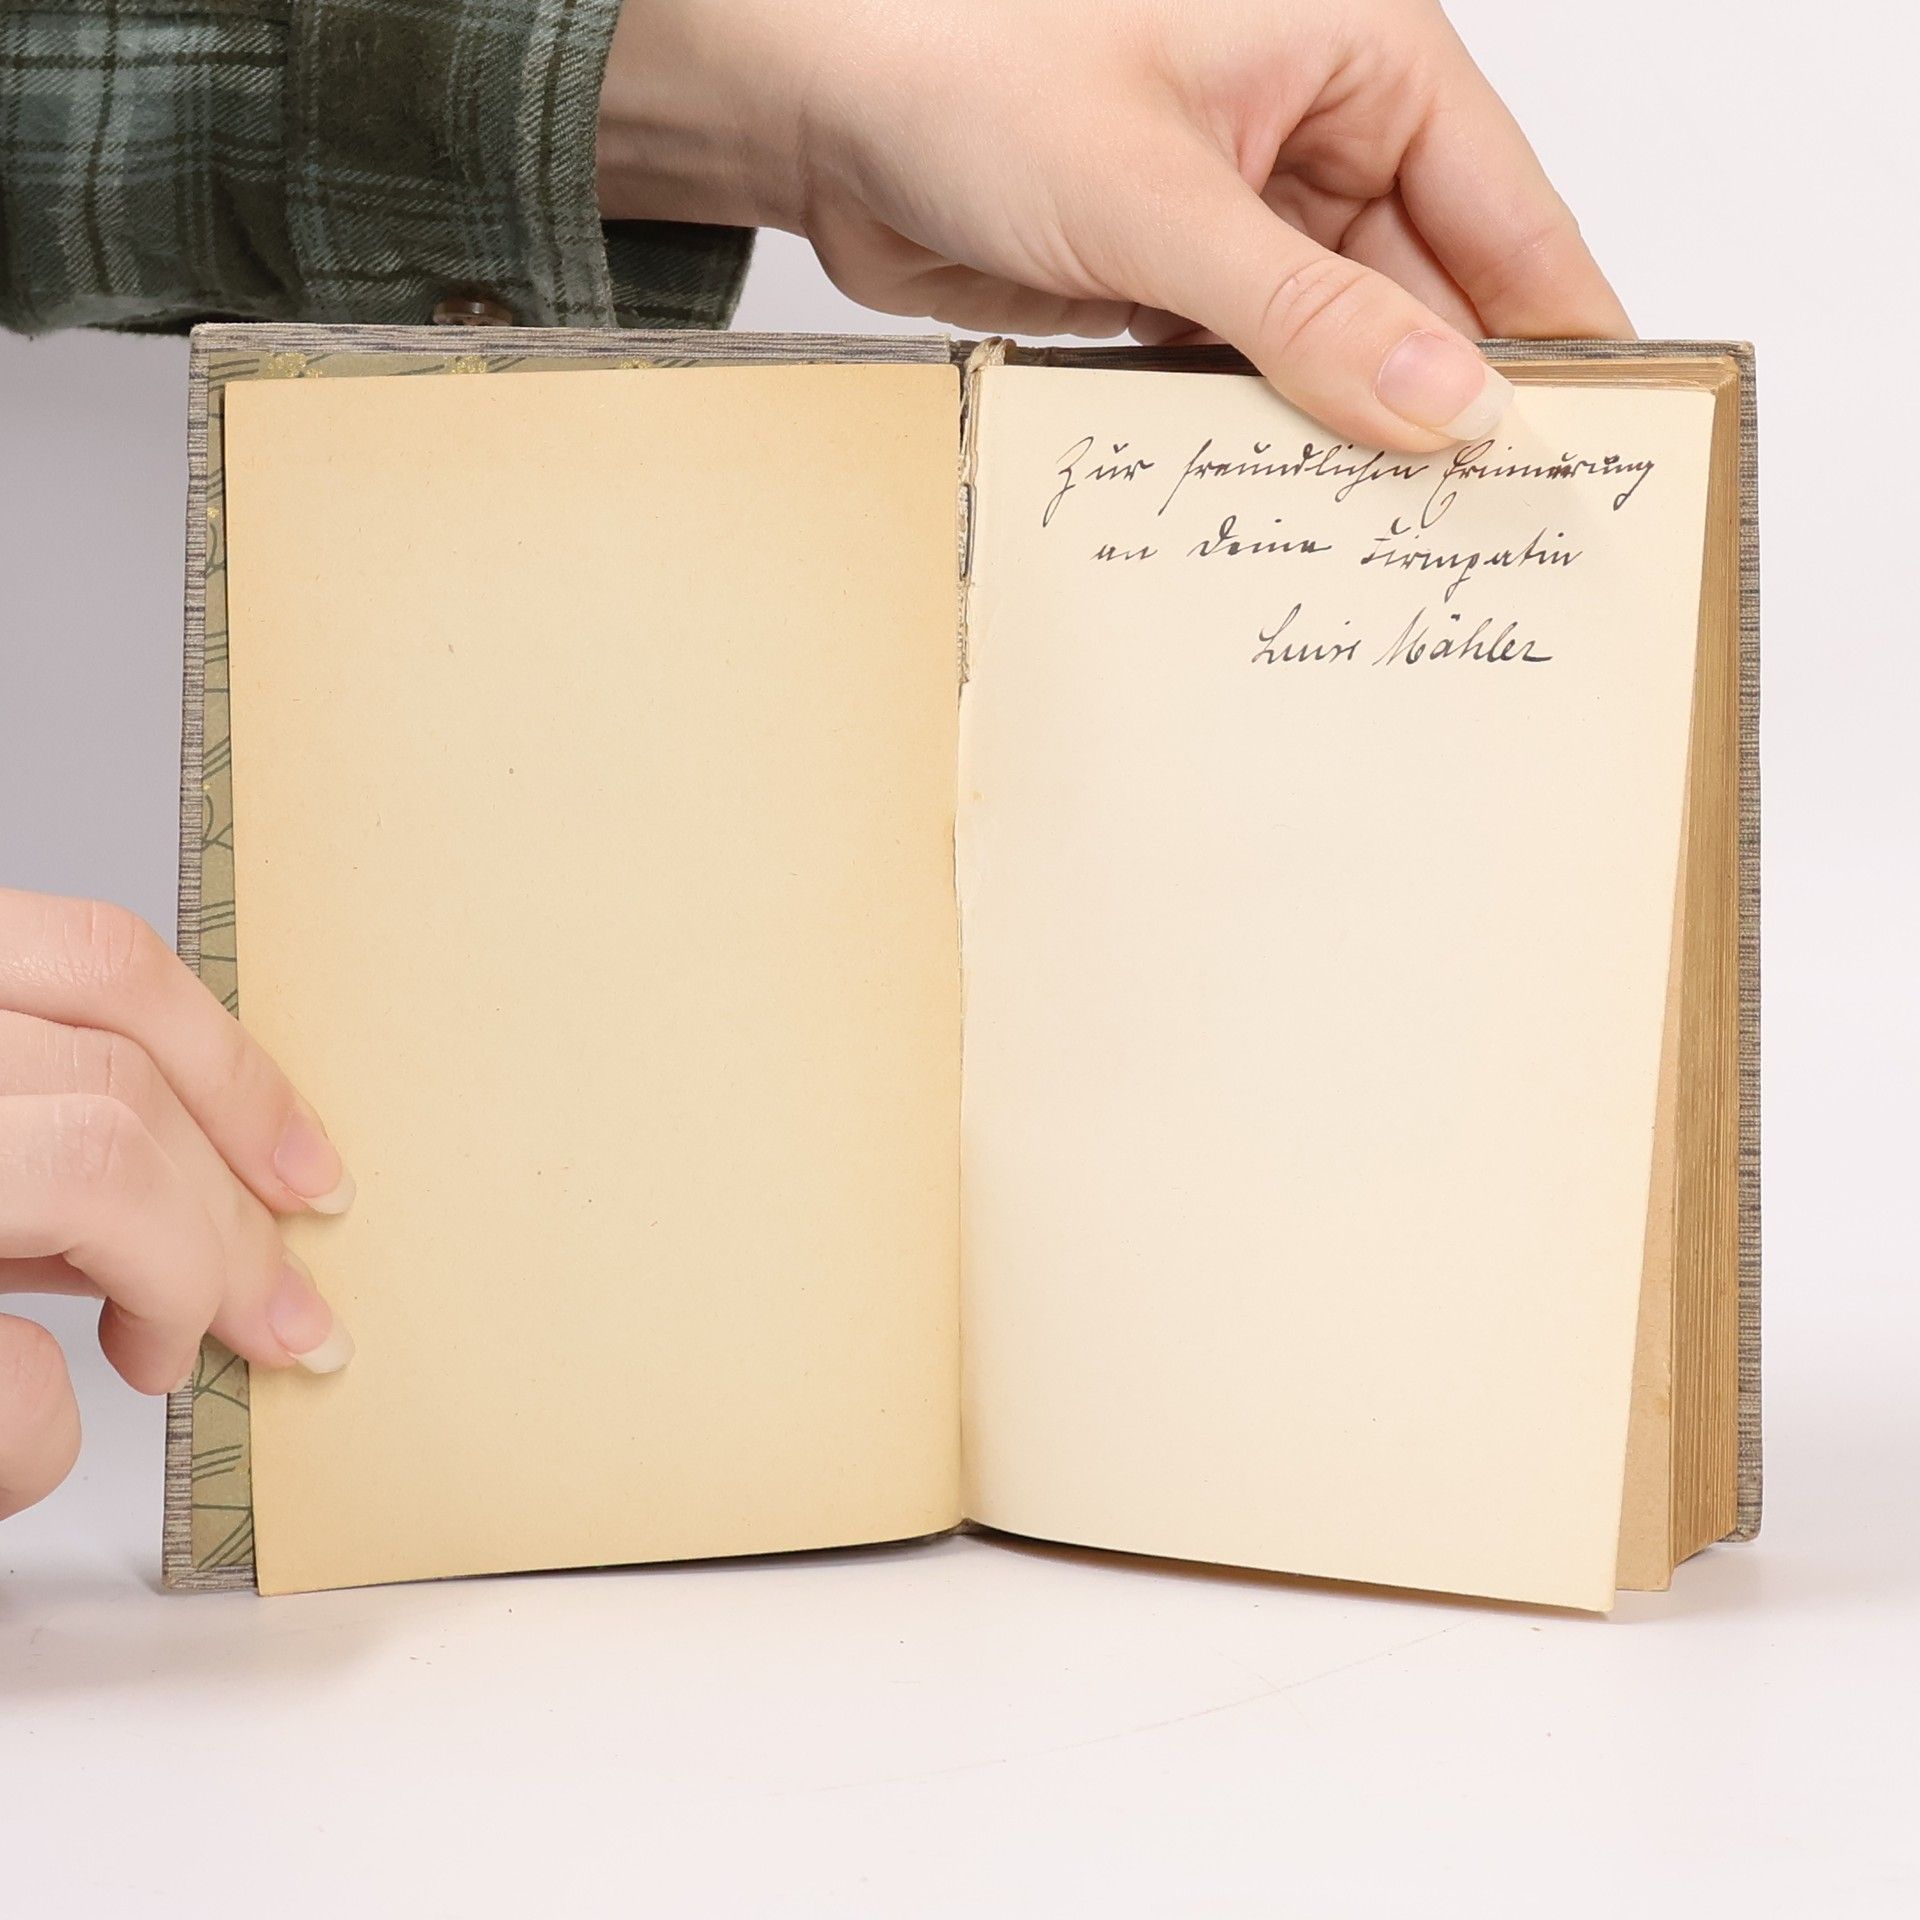 Zur freundlichen Erinnerung
an Deine Firmpatin
Luise Mähler